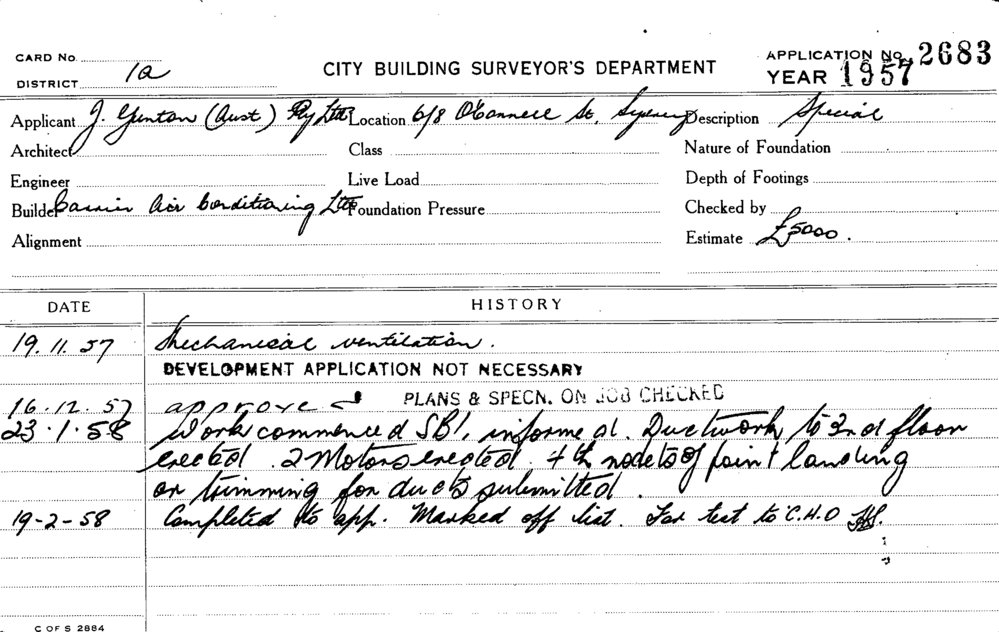 CARD No.
DISTRICT 1a
CITY BUILDING SURVEYOR'S DEPARTMENT
APPLICATION No. 2683
YEAR 1957
Applicant J. Gunton (Aust) Pty Ltd Location 6/8 O'Connell St, Sydney Description Special
Architect Class Nature of Foundation
Engineer Live Load Depth of Footings
Builder Carrier Air Conditioning Ltd Foundation Pressure Checked by
Alignment Estimate £5000.
DATE HISTORY
19.11.57 Mechanical ventilation.
DEVELOPMENT APPLICATION NOT NECESSARY
16.12.57 approve PLANS & SPECN. ON JOB CHECKED
23.1.58 Work commenced SB1, informed. Ductwork to 2nd floor
erected. 2 Motors erected. of point landing
or trimming for ducts submitted.
19-2-58 Completed to app. Marked off list. For test to C.H.O
C OF S 2884